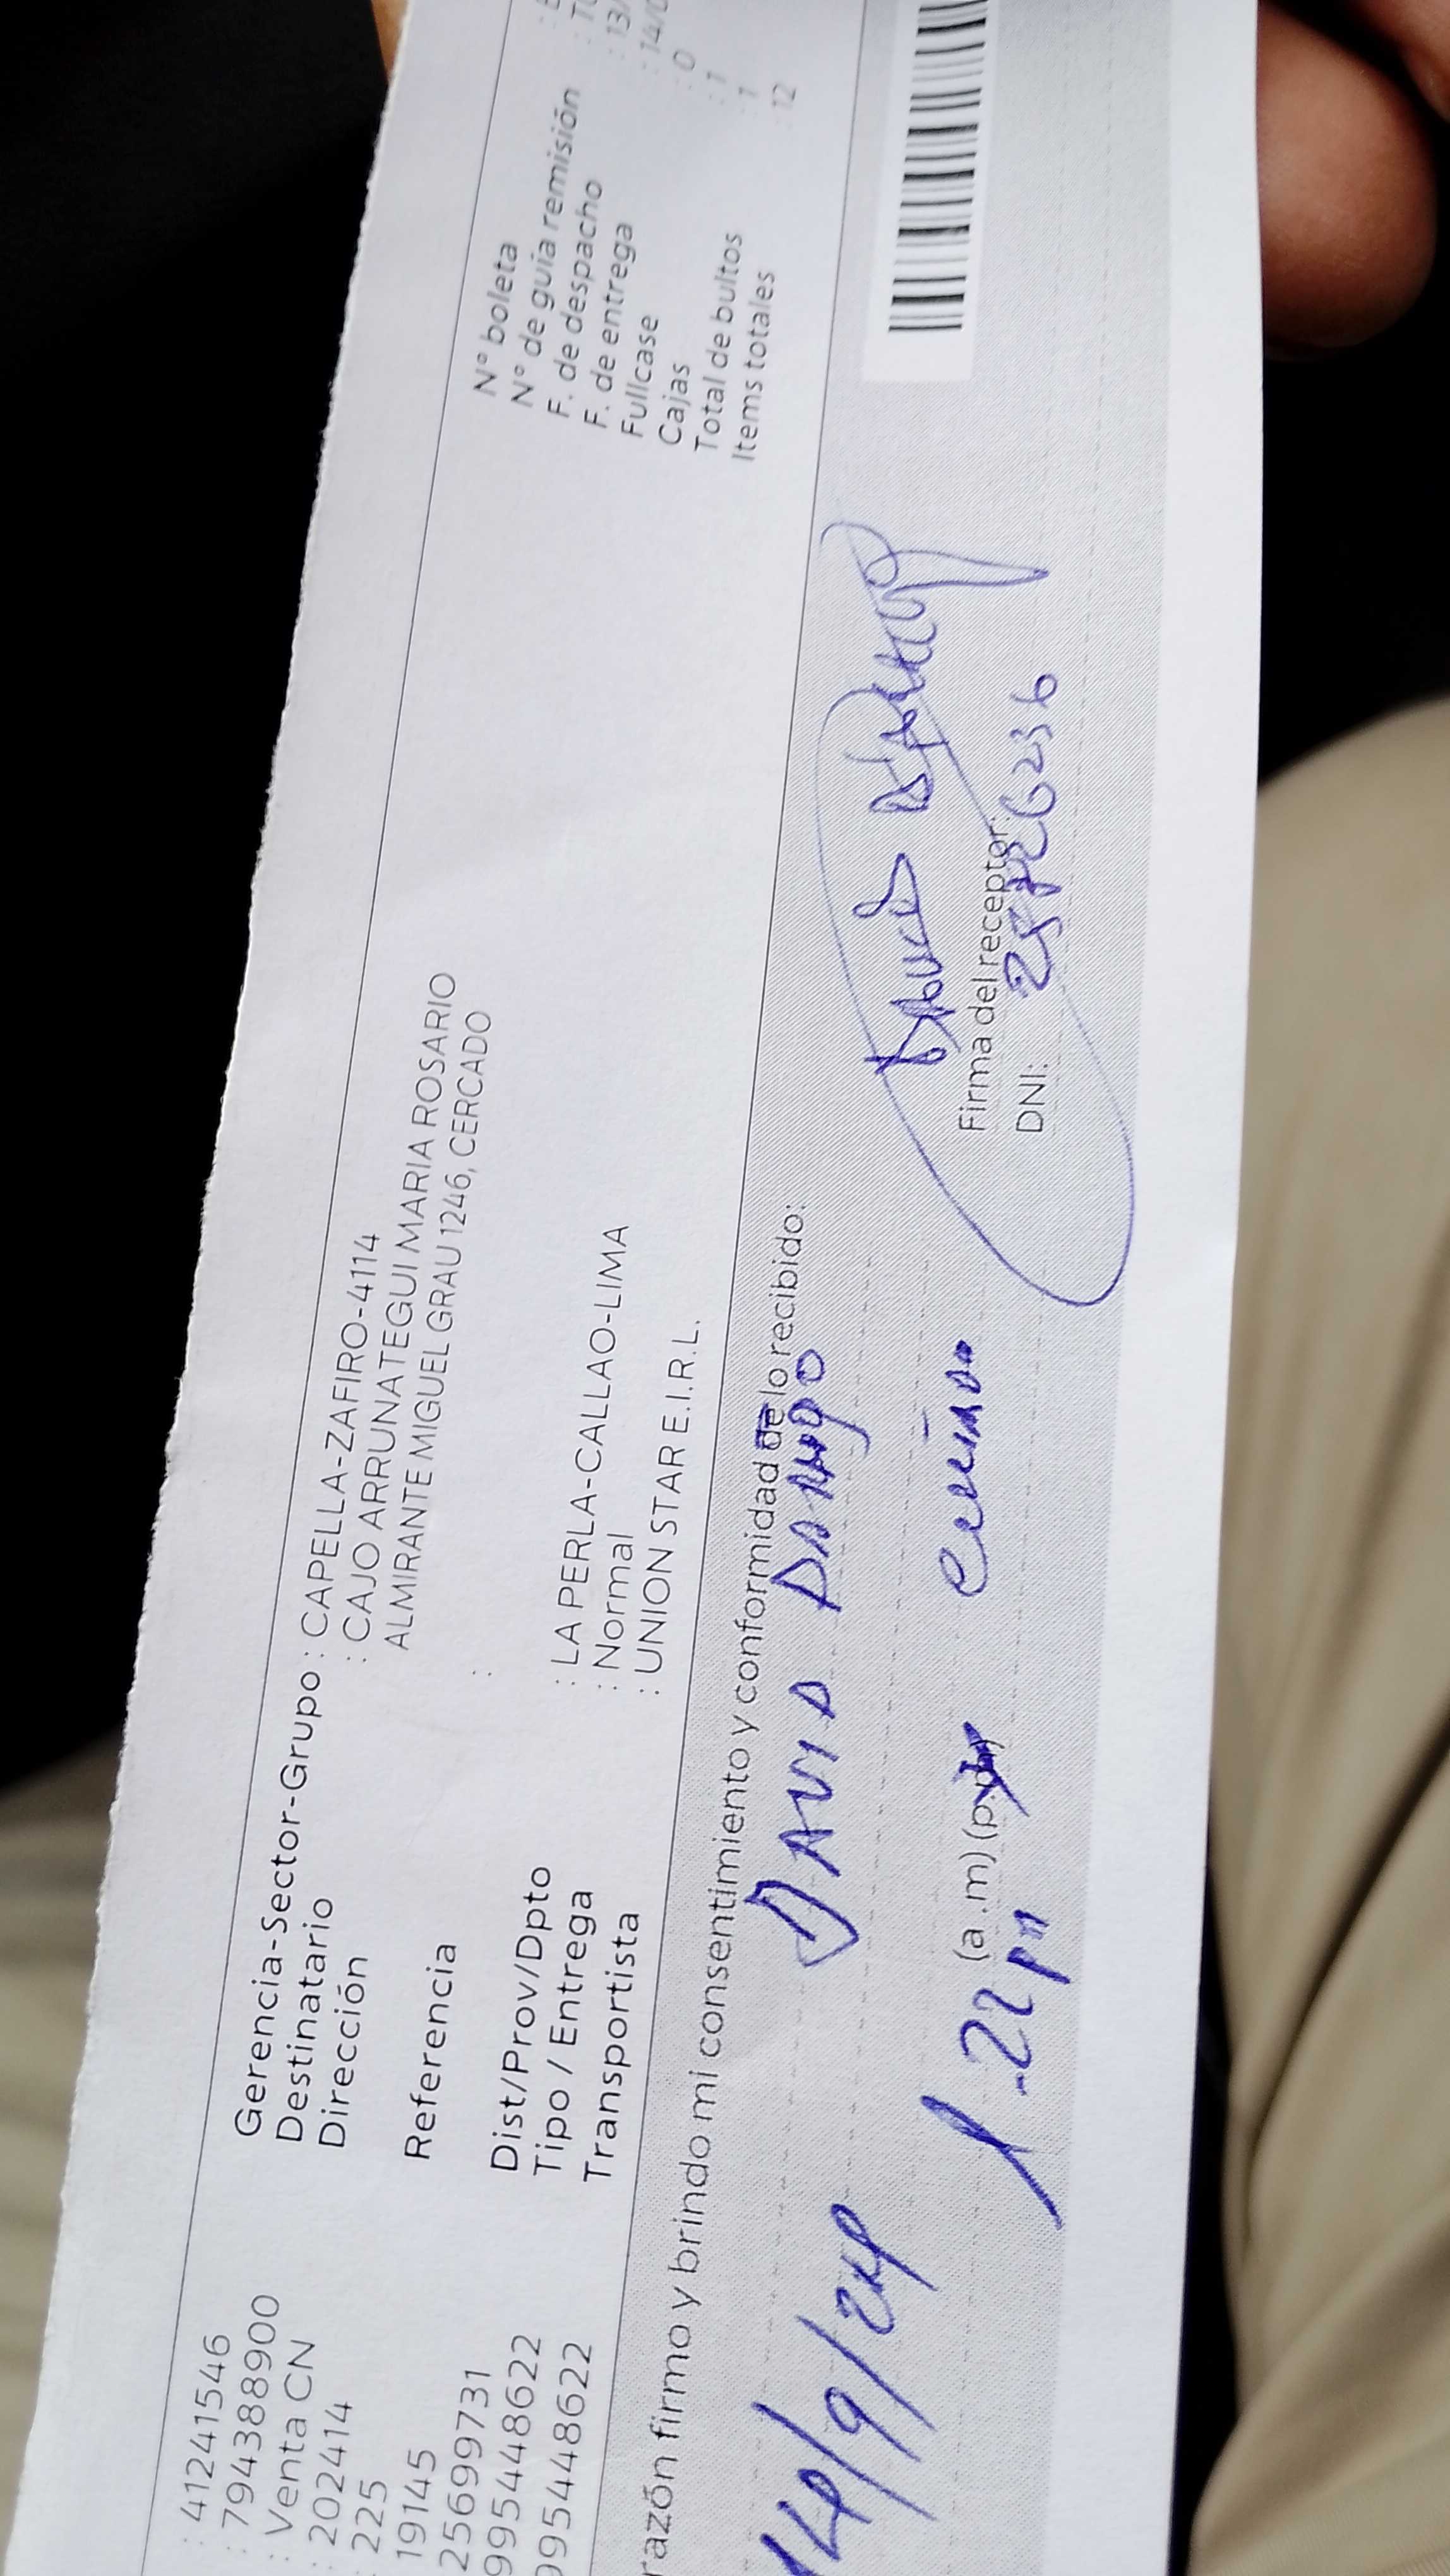 : 41241546
: 794388900
: Venta CN
: 202414
: 225
19145
25699731
995448622
995448622
Gerencia-Sector-Grupo : CAPELLA-ZAFIRO-4114
Destinatario : CAJO ARRUNATEGUI MARIA ROSARIO
Dirección ALMIRANTE MIGUEL GRAU 1246, CERCADO
Referencia :
Dist/Prov/Dpto : LA PERLA-CALLAO-LIMA
Tipo / Entrega : Normal
Transportista : UNION STAR E.I.R.L.
N° boleta
N° de guía remisión
F. de despacho : 13/
F. de entrega : 14/0
Fullcase : 0
Cajas : 1
Total de bultos : 1
Items totales : 12
razón firmo y brindo mi consentimiento y conformidad de lo recibido:
14/9/24
DAVID
1.22 pm (a.m)
Firma del receptor:
DNI: